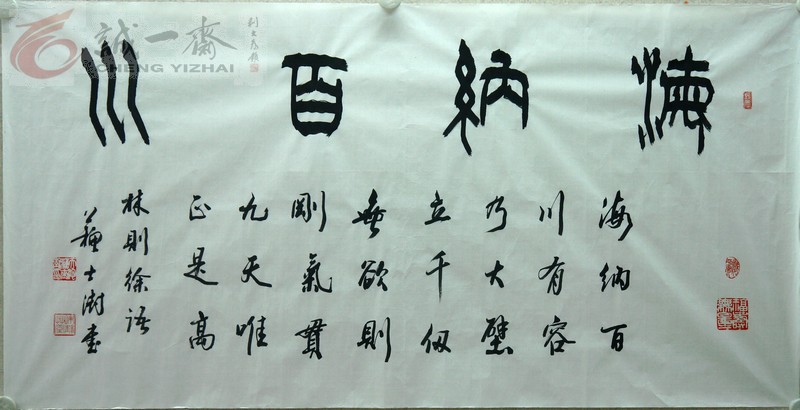 海納百川
海納百
川有容
乃大壁
立千仞
無欲則
剛氣貫
九天唯
正是高
林則徐語
蘇士澍書
誠一齋
CHENG YIZHAI